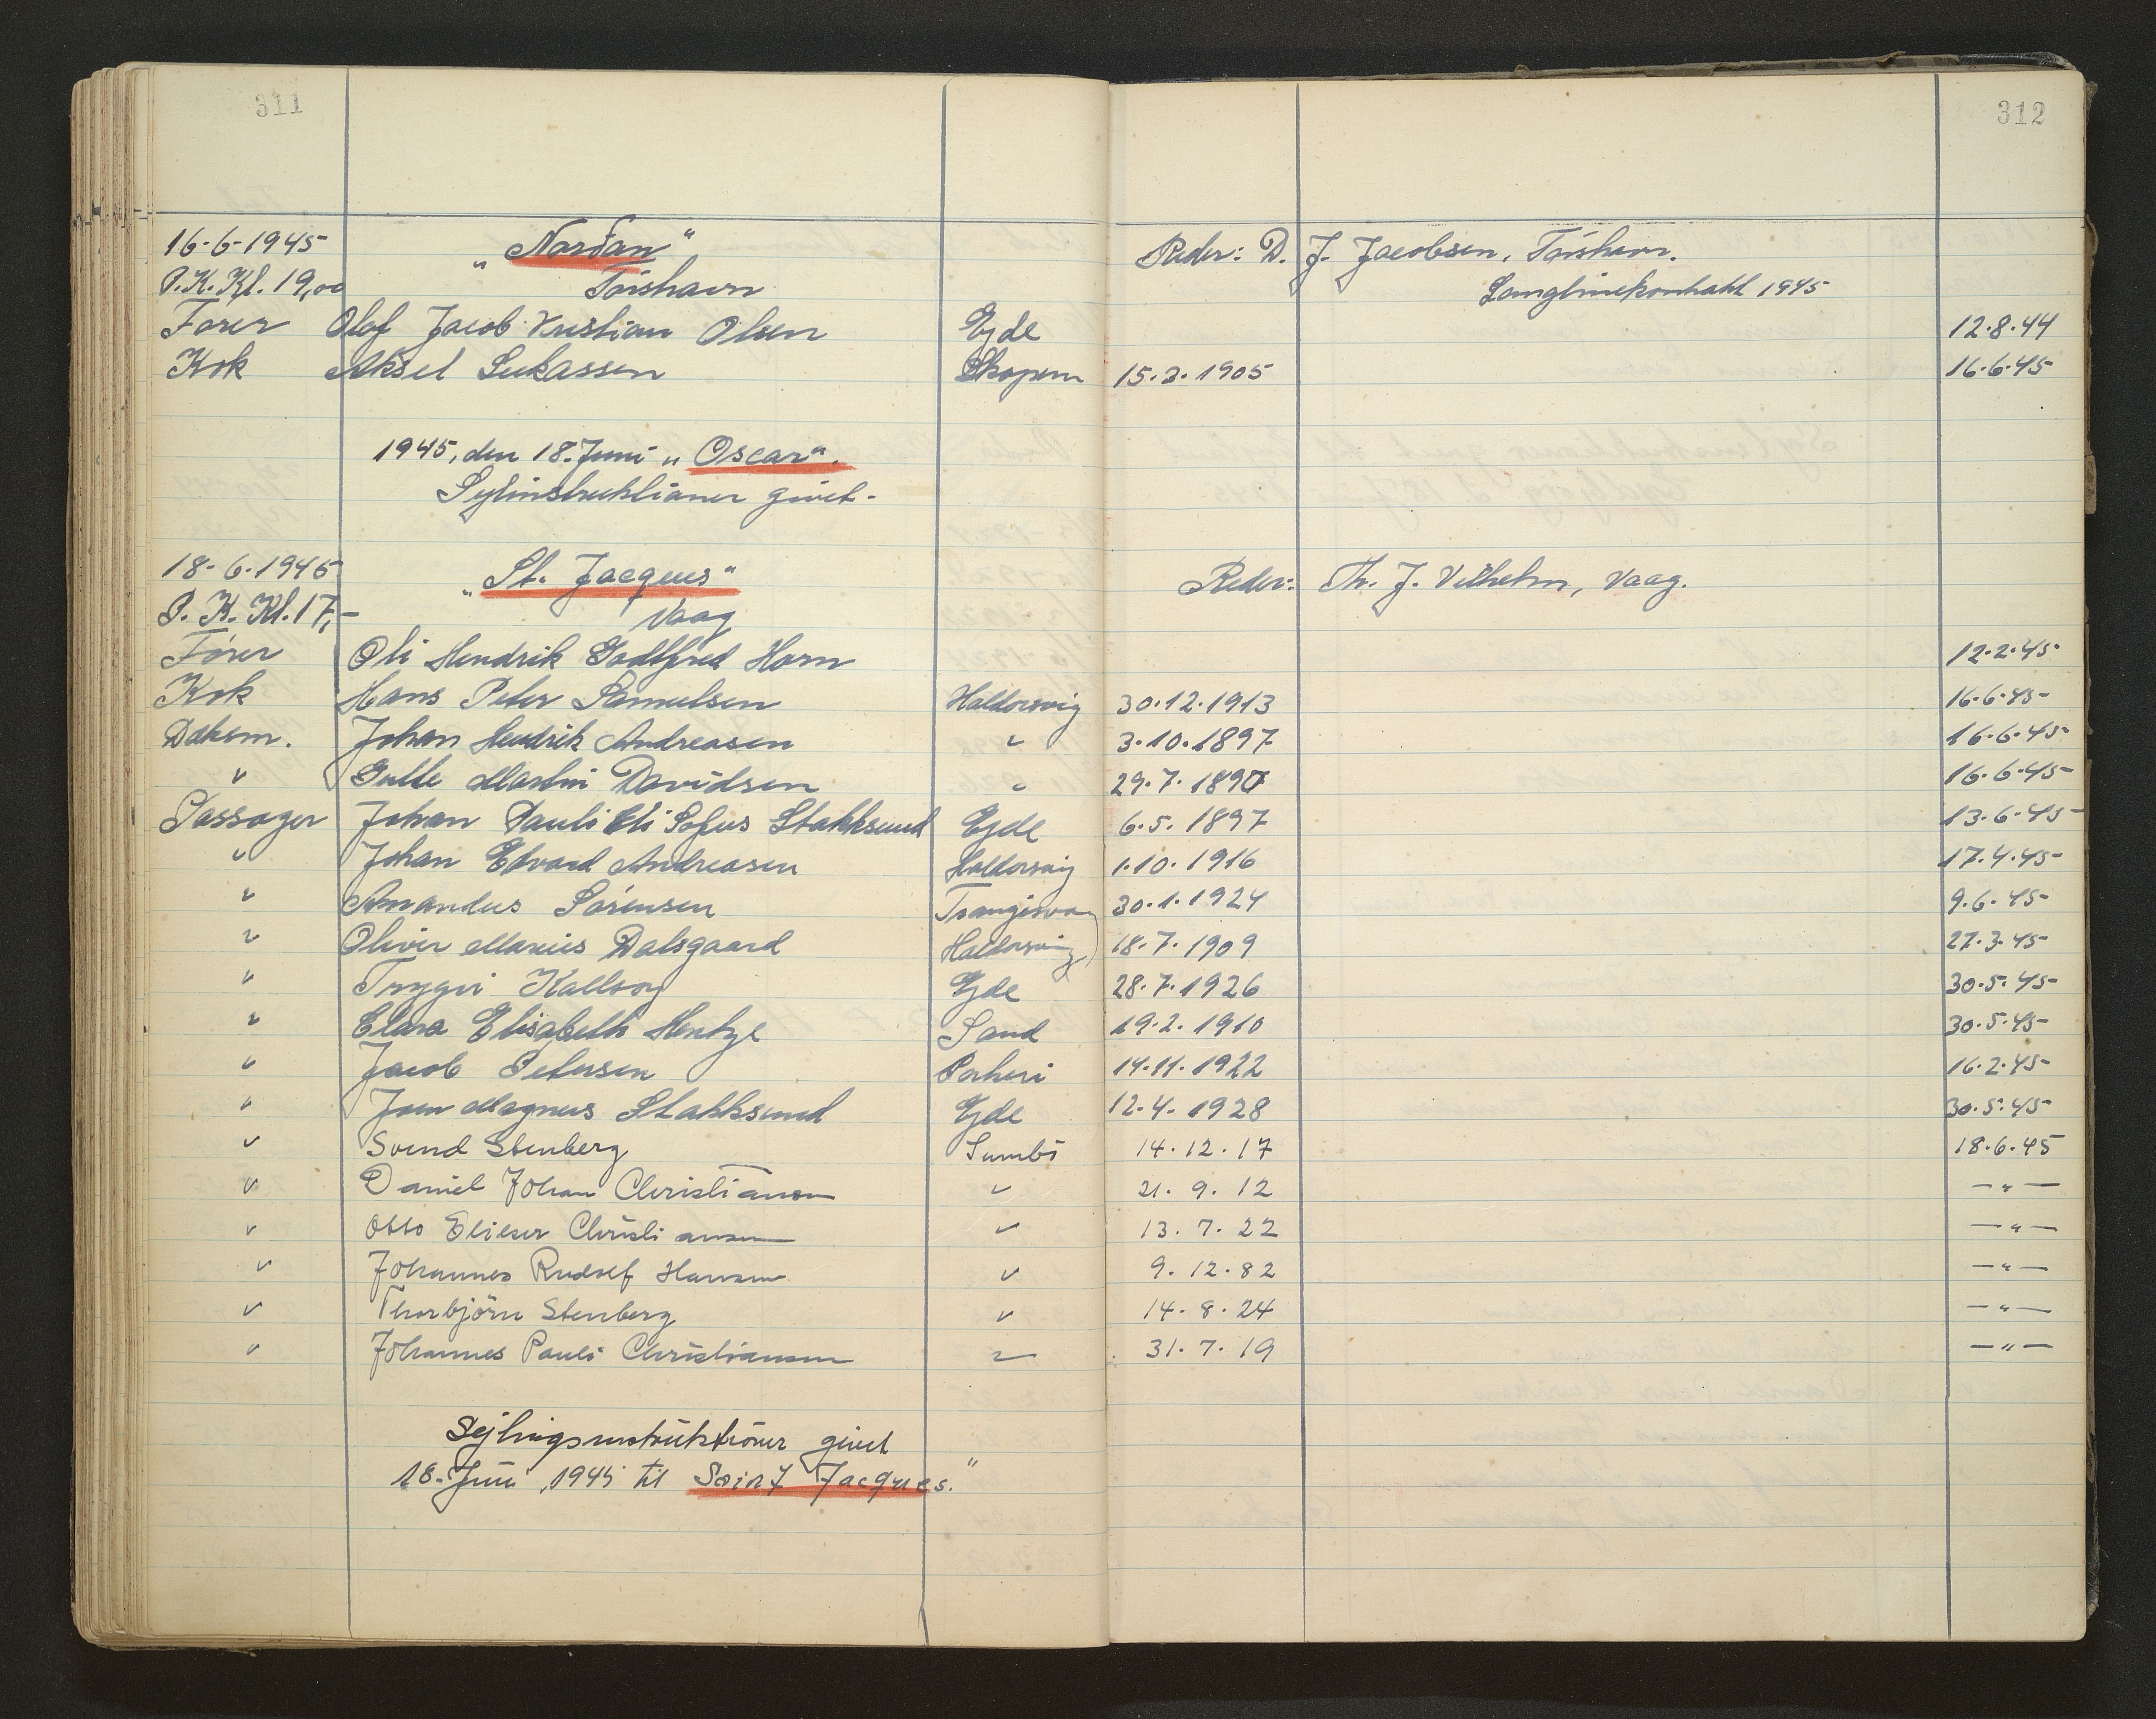 311
312
16-6-1945 „Nordan“ Reder: D. J. Jacobsen, Tórshavn.
P.K. Kl. 19,00 Tórshavn Langlinekontrakt 1945
Fører Olaf Jacob Kristian Olsen Ejde 12.8.44
Kok Aksel Lukassen Skopen 15.3.1905 16.6.45
1945, den 18. Juni „Oscar“.
Sejlinstruktioner givet-
18-6.1945 „St. Jacques“ Reder: Th. J. Vilhelm, Vaag.
P. K. Kl. 17,- Vaag
Fører Oli Hendrik Godtfred Horn 12.2.45
Kok Hans Peter Samuelsen Haldorsvig 30.12.1913 16.6.45
Dæksm. Johan Hendrik Andreasen " 3.10.1897 16.6.45
" Gutte Martin Davidsen " 29.7.1897 16.6.45
Passager Johan Pauli Eli Sofus Stakksund Ejde 6.5.1897 13.6.45
" Johan Edvard Andreasen Haldorsvig 1.10.1916 17.4.45
" Amandus Sørensen Trangisvaag 30.1.1924 9.6.45
" Oliver Marius Dalsgaard Haldorsvig 18.7.1909 27.3.45
" Tryggvi Kallsoy Ejde 28.7.1926 30.5.45
" Clara Elisabeth Hentze Sand 19.2.1910 30.5.45
" Jacob Petersen Porkeri 14.11.1922 16.2.45
" Joen Magnus Stakksund Ejde 12.4.1928 30.5.45
" Svend Stenberg Sumbö 14.12.17 18.6.45
" Daniel Johan Christiansen " 21.9.12 —"—
" Otto Elieser Christiansen " 13.7.22 —"—
" Johannes Rudolf Hansen " 9.12.82 —"—
" Thorbjörn Stenberg " 14.8.24 —"—
" Johannes Pauli Christiansen " 31.7.19 —"—
Sejlingsinstruktioner givet
18. Juni 1945 til Saint Jacques."